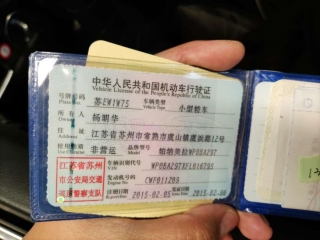 中华人民共和国机动车行驶证
Vehicle License of the People's Republic of China
号牌号码 苏EW1W75 车辆类型 小型轿车
Plate No. Vehicle Type
所有人 杨明华
Owner
住址 江苏省苏州市常熟市虞山镇虞派路12号
Address
使用性质 非营运 品牌型号 帕纳美拉WP0BA297
江苏省苏州 车辆识别代号 WP0BA297XFL016795
市公安局交通 发动机号码 CWF011209
Engine No.
巡逻警察支队 注册日期 2015-02-05 发证日期 2015-02-06